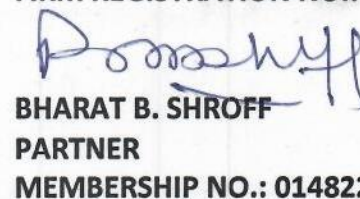 BHARAT B. SHROFF
PARTNER
MEMBERSHIP NO.: 014822